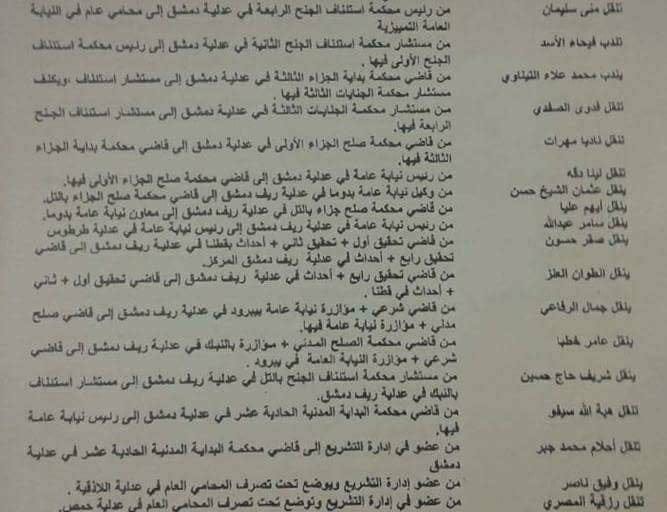 تنقل منى سليمان من رئيس محكمة استئناف الجنح الرابعة في عدلية دمشق إلى محامي عام في النيابة
العامة التمييزية
تندب فيحاء الأسد من مستشار محكمة استئناف الجنح الثانية في عدلية دمشق إلى رئيس محكمة استئناف
الجنح الأولى فيها .
يندب محمد علاء التيناوي من قاضي محكمة بداية الجزاء الثالثة في عدلية دمشق إلى مستشار استئناف ،ويكلف
مستشار محكمة الجنايات الثالثة فيها .
تنقل فدوى الصفدي من مستشار محكمة الجنايات الثالثة في عدلية دمشق إلى مستشار استئناف الجنح
الرابعة فيها.
تنقل ناديا مهرات من قاضي محكمة صلح الجزاء الأولى في عدلية دمشق إلى قاضي محكمة بداية الجزاء
الثالثة فيها.
تنقل لينا دله من رئيس نيابة عامة في عدلية دمشق إلى قاضي محكمة صلح الجزاء الأولى فيها.
ينقل عثمان الشيخ حسن من وكيل نيابة عامة بدوما في عدلية ريف دمشق إلى قاضي محكمة صلح الجزاء بالتل.
ينقل أيهم عليا من قاضي محكمة صلح جزاء بالتل في عدلية ريف دمشق إلى معاون نيابة عامة بدوما.
ينقل سامر عبدالله من رئيس نيابة عامة في عدلية ريف دمشق إلى رئيس نيابة عامة في عدلية طرطوس
ينقل صقر حسون من قاضي تحقيق أول + تحقيق ثاني + أحداث بقطنا في عدلية ريف دمشق إلى قاضي
تحقيق رابع + أحداث في عدلية ريف دمشق المركز.
ينقل انطوان العنز من قاضي تحقيق رابع + أحداث في عدلية ريف دمشق إلى قاضي تحقيق أول + ثاني
+ أحداث في قطنا .
ينقل جمال الرفاعي من قاضي شرعي + مؤازرة نيابة عامة بيبرود في عدلية ريف دمشق إلى قاضي صلح
مدني + مؤازرة نيابة عامة فيها.
ينقل عامر خطبا من قاضي محكمة الصلح المدني + مؤازرة بالنبك في عدلية ريف دمشق إلى قاضي
شرعي + مؤازرة النيابة العامة في يبرود .
ينقل شريف حاج حسين من مستشار محكمة استئناف الجنح بالتل في عدلية ريف دمشق إلى مستشار استئناف
بالنبك في عدلية ريف دمشق.
تنقل هبة الله سيفو من قاضي محكمة البداية المدنية الحادية عشر في عدلية دمشق إلى رئيس نيابة عامة
فيها.
تنقل أحلام محمد جبر من عضو في إدارة التشريع إلى قاضي محكمة البداية المدنية الحادية عشر في عدلية
دمشق
ينقل وفيق ناصر من عضو في إدارة التشريع ويوضع تحت تصرف المحامي العام في عدلية اللاذقية .
تنقل رزقية المصري من عضو في إدارة التشريع وتوضع تحت تصرف المحامي العام في عدلية حمص.